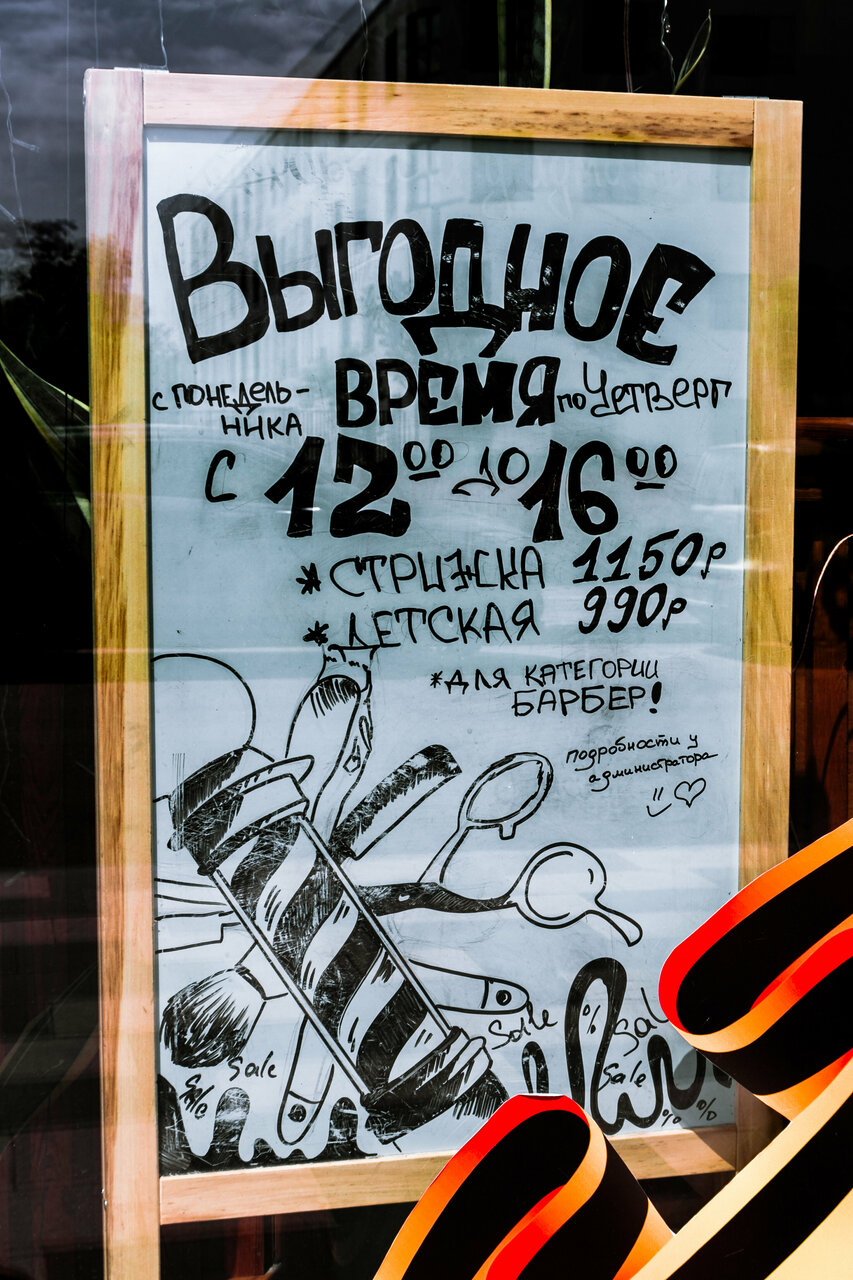 Выгодное
с понедель-
ника
время
по четверг
с 12 00 до 16 00
* стрижка 1150р
* детская 990р
*для категории
барбер!
подробности у
администратора
Sale
%
Sale
Sale
Sale
Sale
% %